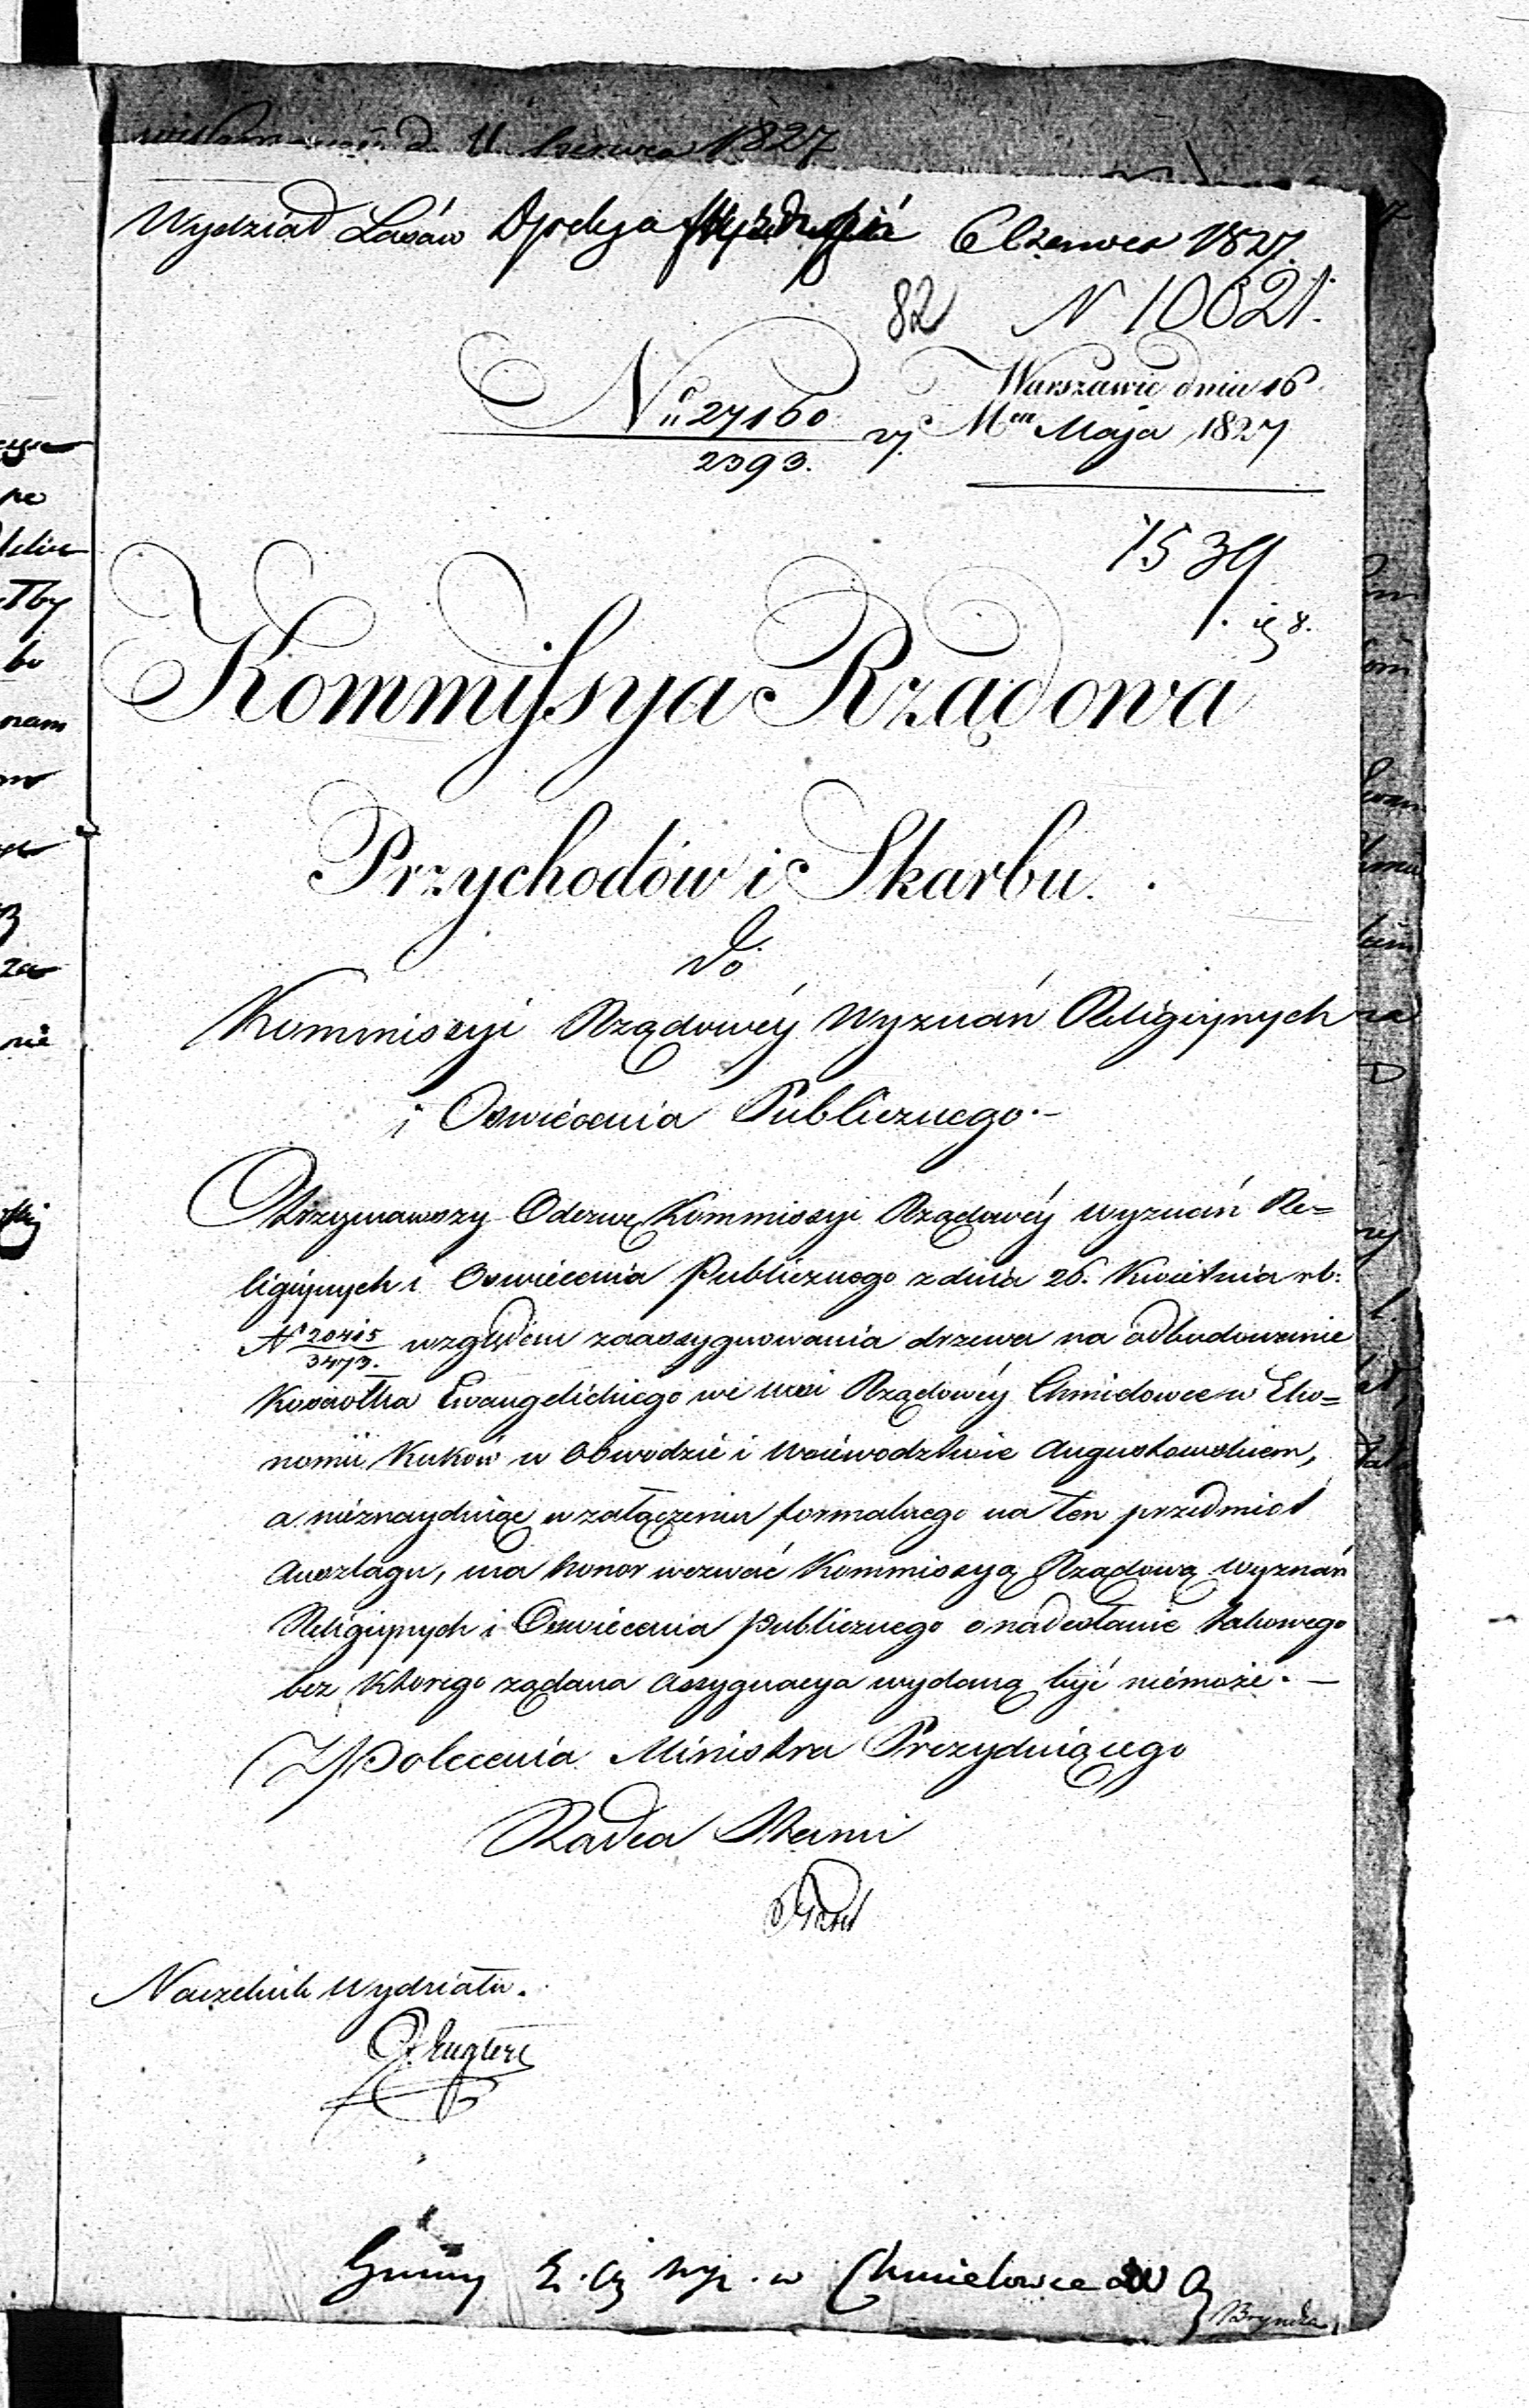 d. 11 Czerwca 1827
Wydział Lasów Dyrekcya 6 Czerwca 1827.
82 N 10621.
Nro 27160 / 2393. w Warszawie dnia 16
Mca Maja 1827
1539
Kommissya Rządowa
Przychodów i Skarbu.
do
Kommissyi Rządowéy Wyznań Religiynych
i Oswiécenia Publicznego.-
Otrzymawszy Odezwę Kommissyi Rządowéy Wyznań Re=
ligiynych i Oswiecenia Publicznego z dnia 26. Kwietnia rb:
N 20415 / 3473. względem zaassygnowania drzewa na odbudowanie
Kosciołka Ewangelickiego we wsi Rządowéy Chmielowce w Eko=
nomii Kuków w Obwodzie i Woiéwodztwie Augustowskiem,
a nieznayduiąc w załączeniu formalnego na ten przedmiot
Anszlagu, ma honor wezwać Kommissyą Rządową Wyznań
Religiynych i Oswiecenia Publicznego o nadesłanie takowego
bez ktorego ządana Assygnacya wydaną być niemoże. —
Z Polecenia Ministra Prezyduiącego
Radca Stanu
Naczelnik Wydziału.
Gminy w Chmielowce